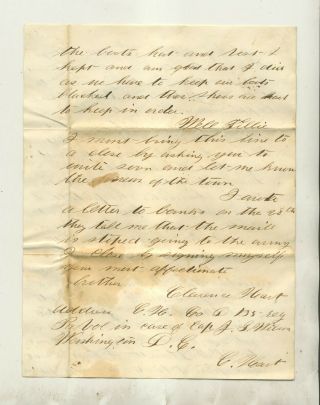 the boots hat and vest I
kept and am glad that I did
as we have to keep our boots
blacked and these shoes are hard
to keep in order
Well Ellie
I must bring this line to
a close by asking you to
write soon and let me know
the news of the town
I wrote
a letter to on the 28th
they told me that the mail
is stoped going to the army
I close by signing myself
your most affectionate
brother
Clarence Hart
Address C. H. Co D 155 reg
Pa Vol in care of Cap J.
Washington D. C.
C. Hart